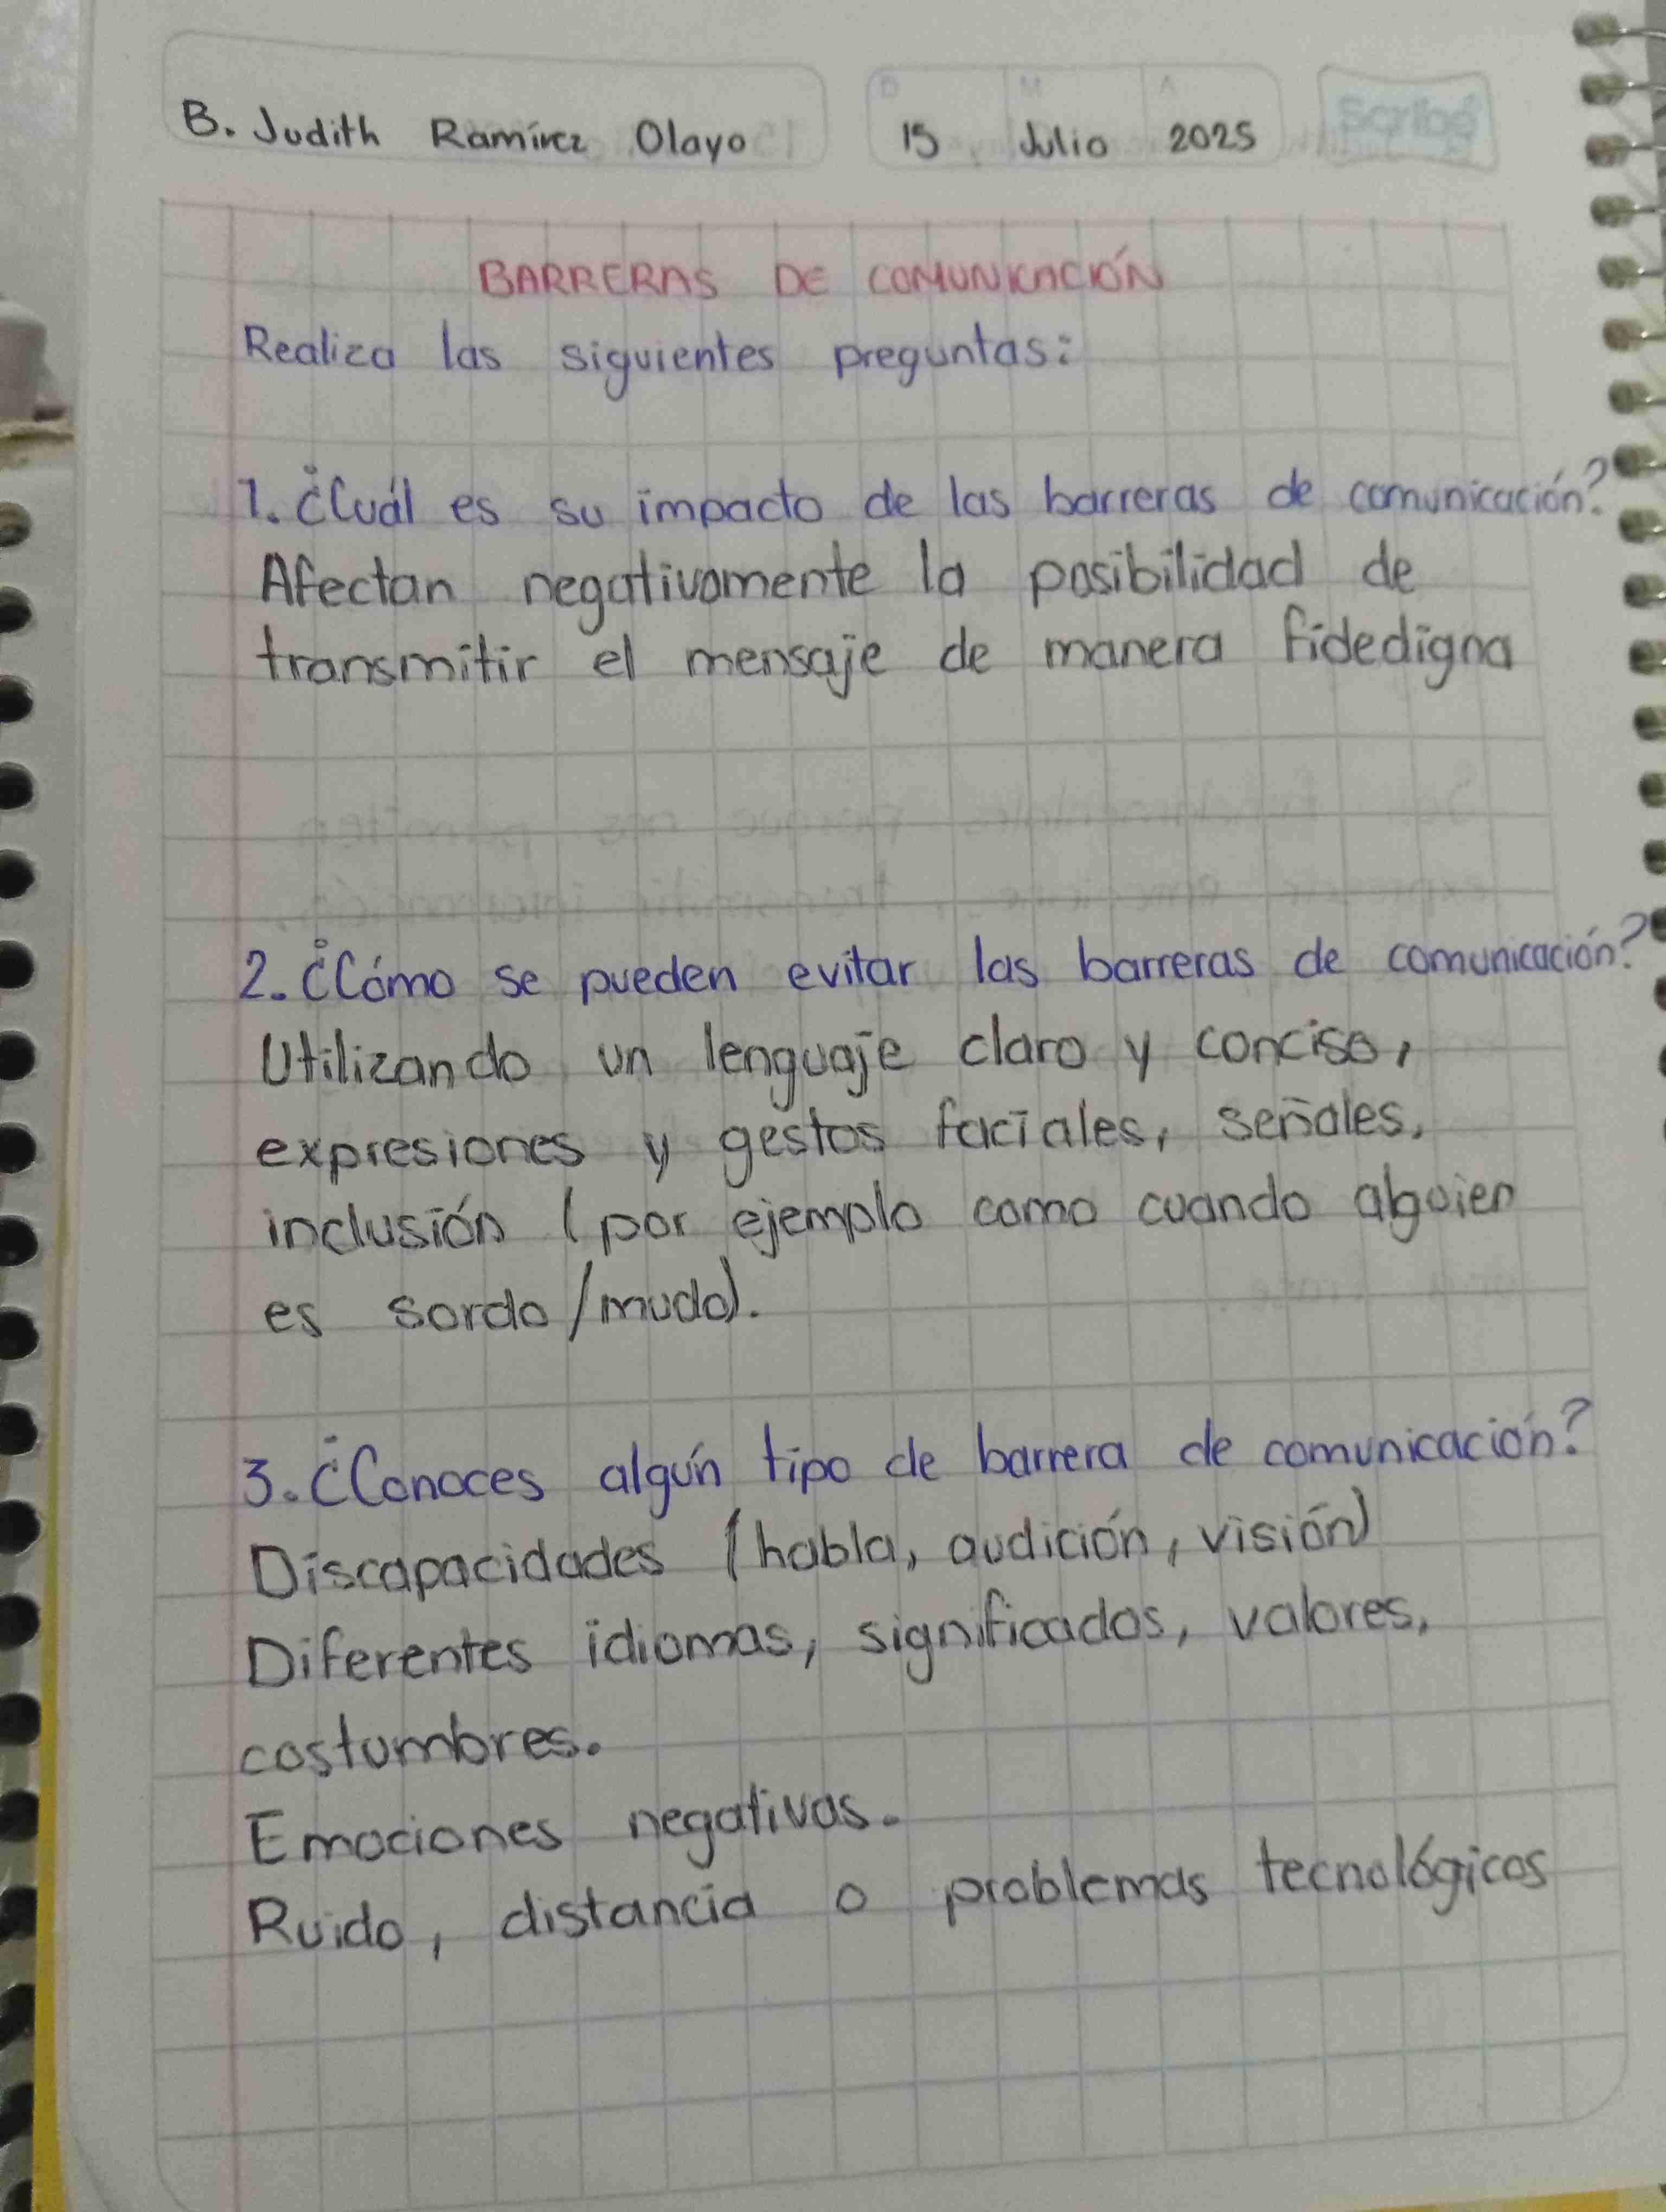 B. Judith Ramírez Olayo
D M A
15 Julio 2025
Scribe
BARRERAS DE COMUNICACIÓN
Realiza las siguientes preguntas:
1. ¿Cuál es su impacto de las barreras de comunicación?
Afectan negativamente la posibilidad de
transmitir el mensaje de manera fidedigna
2. ¿Cómo se pueden evitar las barreras de comunicación?
Utilizando un lenguaje claro y conciso,
expresiones y gestos faciales, señales,
inclusión (por ejemplo como cuando alguien
es sordo/mudo).
3. ¿Conoces algún tipo de barrera de comunicación?
Discapacidades (habla, audición, visión)
Diferentes idiomas, significados, valores,
costumbres.
Emociones negativas.
Ruido, distancia o problemas tecnológicos